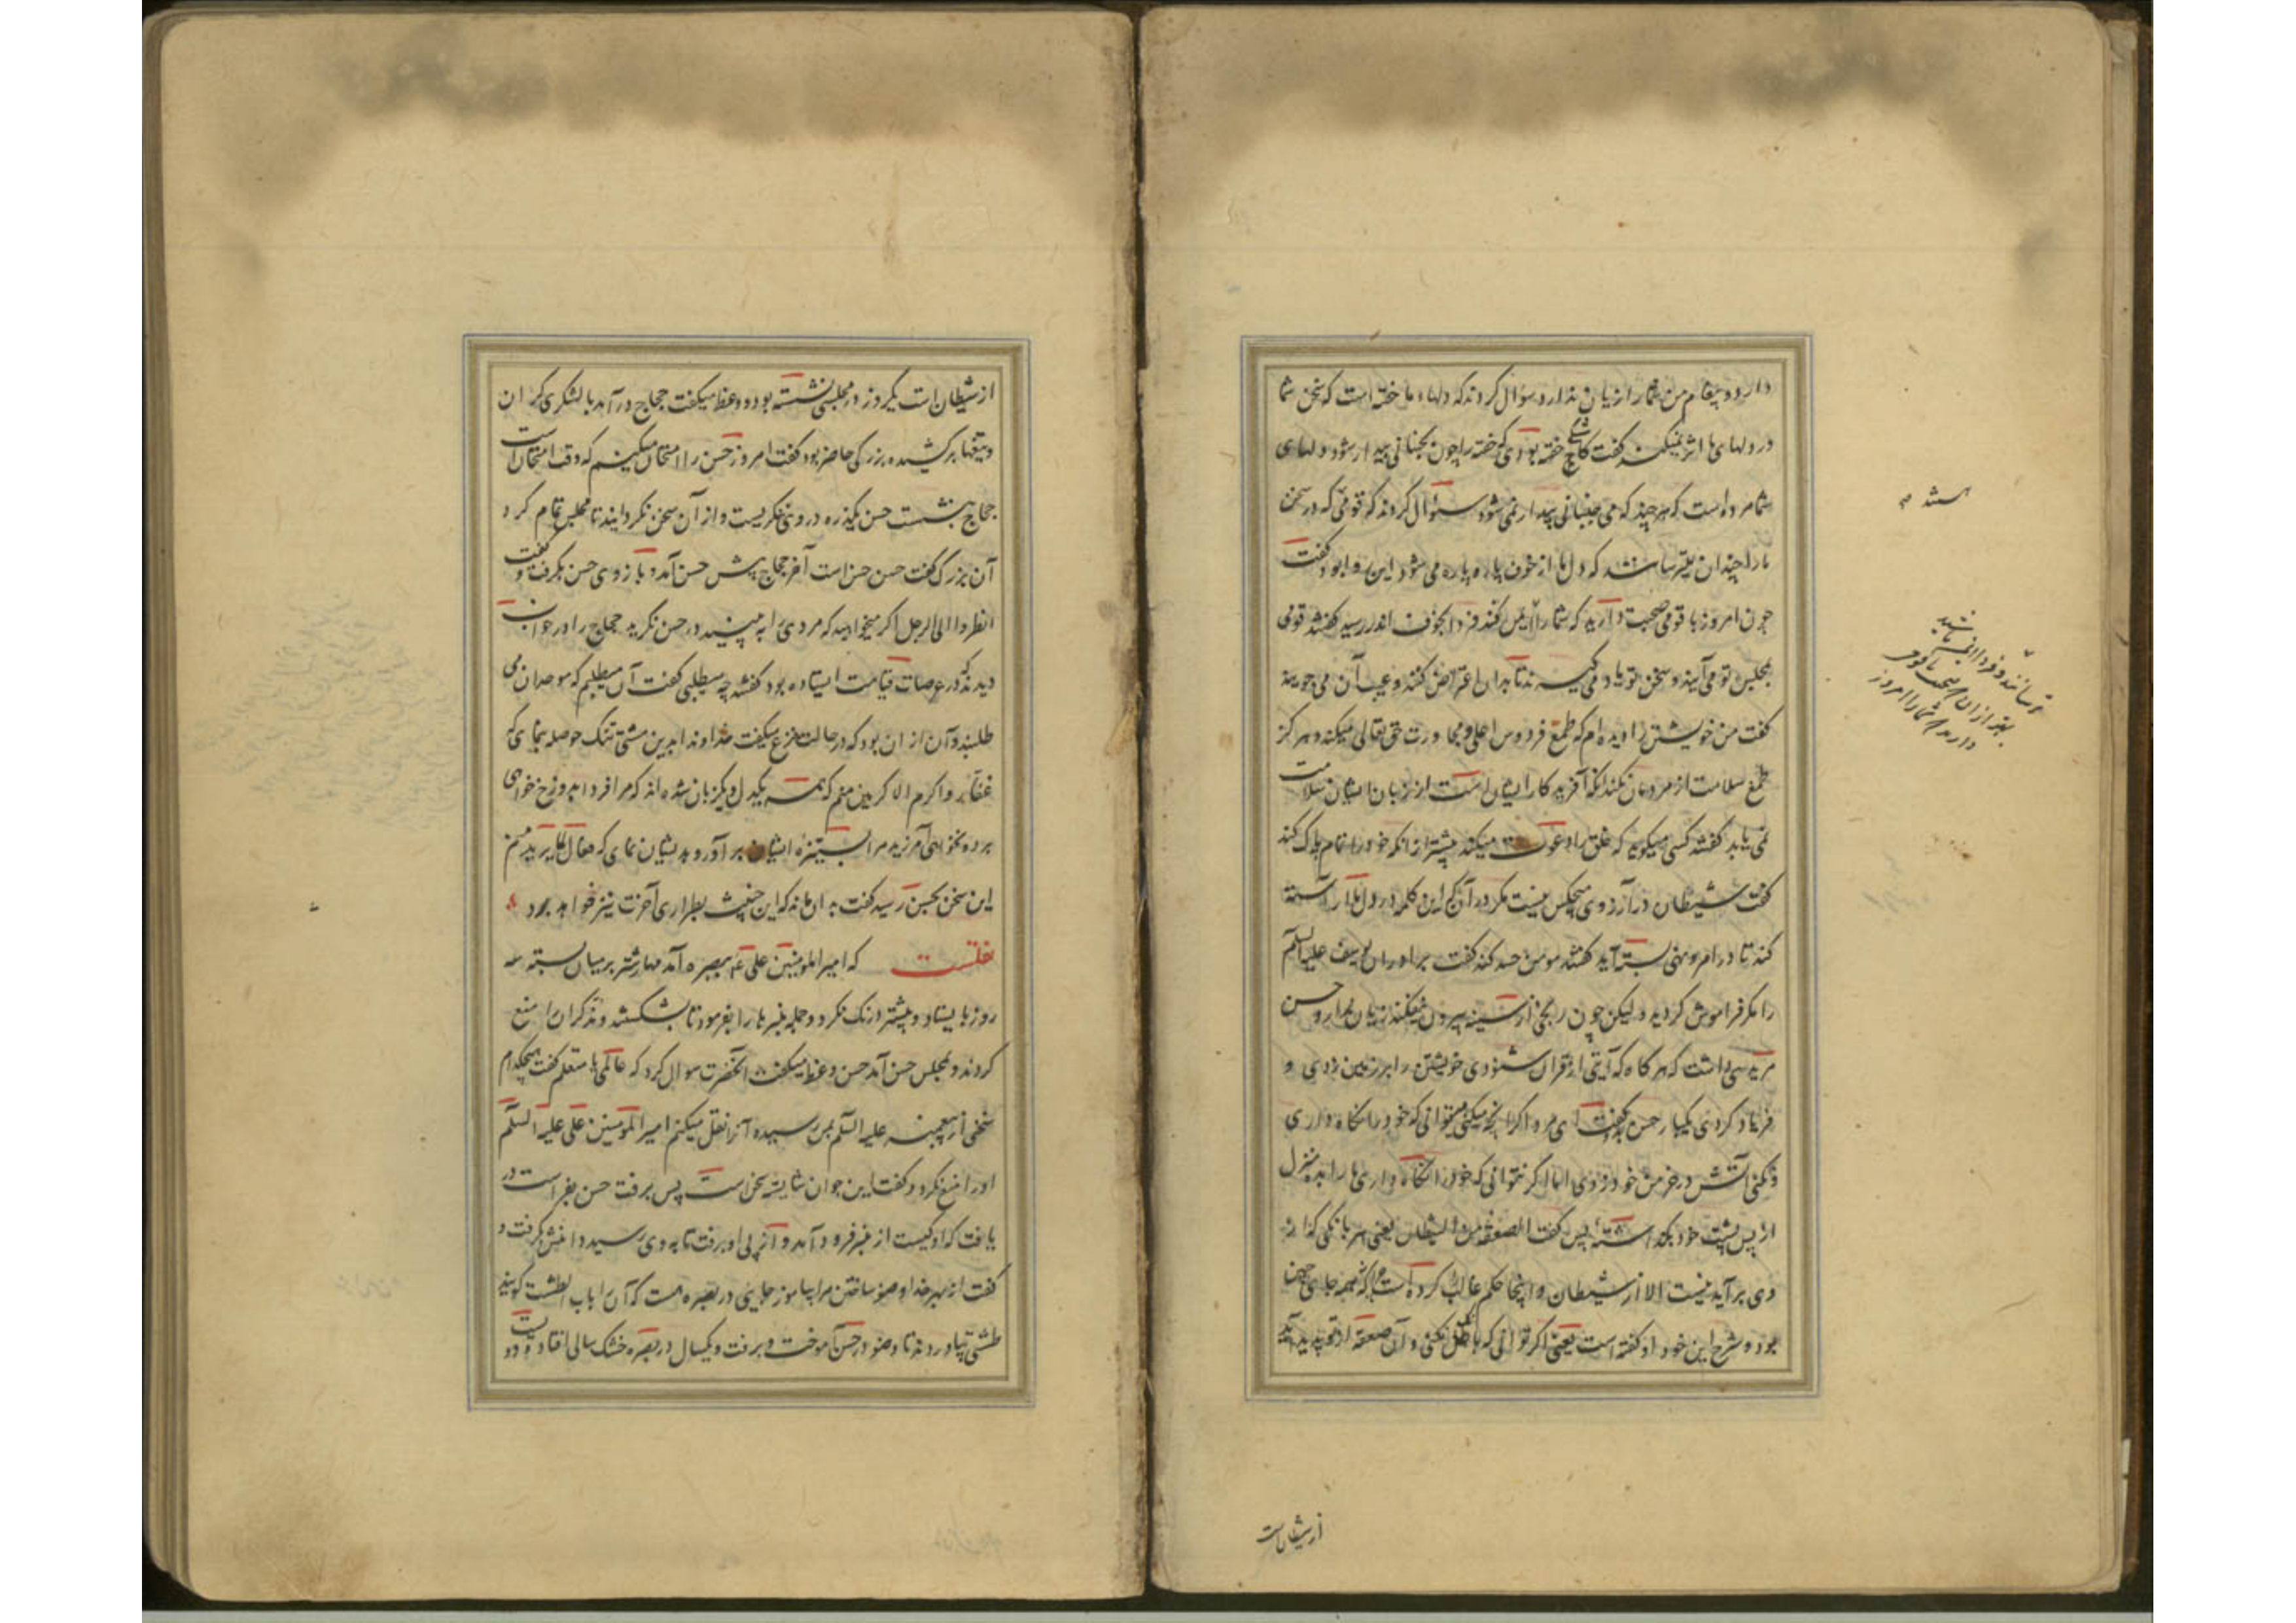 دارد و پیغام من شمارا زیان ندارد سؤال کردند که دلهاء ما خفته است که سخن شما
در دلهای ما اثر نمیکند گفت کاشکی خفته بودی که خفته را چون بجنبانی بیدار شود دلهای
شما مرده است که هر چند که می جنبانی بیدار نمی شود سؤال کردند که قومی که در سخن
مارا چندان بترسانند که دل ما از خوف پاره پاره می شود این روا بود گفت
چون امروز با قومی صحبت دارید که شمارا ایمن کنند فردا بخوف اندر رسید گفتند قومی
بمجلس تو می آیند و سخن تو یاد می گیرند تا بدان اعتراض کنند و عیب آن می جویند
گفت من خویشتن را دیده ام که طمع فردوس اعلی و مجاورت حق تعالی میکند و هرگز
طمع سلامت از مردمان نکند که آفریدگار ایشان است از زبان ایشان سلامت
نمی یابد گفتند کسی میگوید که خلق را دعوت میکند پیشتر از آنکه خود را تمام پاک کند
گفت شیطان در آرزوی هیچکس نیست مگر در آنکه این کلمه در دل ما آراسته
کند تا در امر و نهی بسته آید گفتند مومن حسد کند گفت برادران یوسف علیه السلم
را مگر فراموش کردید و لیکن چون رنجی از سینه بیرون نیفکند زیان ندارد و حسن
مریدی داشت که هر گاه که آیتی از قران شنودی خویشتن را بر زمین زدی و
فریاد کردی یکبار حسن بگفت ای مرد اگر اینچه میکنی میتوانی که خود را نگاه داری
و نکنی آتش در خرمن خود زدی اما اگر نتوانی که خود را نگاه داری ما را بده منزل
از پس پشت خود بگذاشته پس گفت الصعقه من الشیطان یعنی هر بانگی که از
وی بر آید نیست الا از شیطان و اینجا حکم غالب کرده است که نه همه جای چنین
بوده شرح این خود او گفته است یعنی اگر توانی که باطل نکنی و آن صعقه از تو پدید آید
از شیطانست
ترسانند و فردا ایمن باشید
بهتر از آن که صحبت با قومی
دارید که شمارا امروز
از شیطان است یکروز در مجلس نشسته بود و وعظ میگفت حجاج در آمد با لشکری گران
و تیغها برکشیده بزرگی حاضر بود گفت امروز حسن را امتحان میکنیم که وقت امتحان است
حجاج بنشست حسن یکذره در وی ننگریست و از آن سخن نگردانید تا مجلس تمام کرد
آن بزرگ گفت حسن حسن است آخر حجاج پیش حسن آمد و بازوی حسن بگرفت و گفت
انظروا الی الرجل اگر میخواهید که مردی را به بینید در حسن نگرید حجاج را در خواب
دیدند که در عرصات قیامت ایستاده بود گفتند چه میطلبی گفت آن میطلبم که موحدان می
طلبند و آن از ان بود که در حالت نزع میگفت خداوندا بدین مشتی تنگ حوصله بنمای که
غفار و اکرم الاکرمین منم که همه یکدل و یکزبان شده اند که مرا فردا بدوزخ خواهی
برد و نخواهی آمرزید مرا بستیزه ایشان بر آور و بدیشان نمای که فعال لما یرید منم
این سخن بحسن رسید گفت بدان ماند که این خبیث بطراری آخرت نیز خواهد برد
نقلست که امیر المومنین علی ع ببصره آمد مهار شتر بر میان بسته سه
روز بایستاد و بیشتر درنگ نکرد و جمله منبرها را بفرمود تا بشکستند و مذکران را منع
کردند و بمجلس حسن آمد حسن وعظ میگفت آنحضرت سوال کرد که عالمی یا متعلم گفت هیچکدام
سخنی از پیغمبر علیه السلم بمن رسیده آنرا نقل میکنم امیر المومنین علی علیه السلم
او را منع نکرد و گفت این جوان شایسته سخن است پس برفت حسن بفراست در
یافت که او کیست از منبر فرود آمد و از پی او برفت تا به وی رسید دامنش گرفت و
گفت از بهر خدا وضو ساختن مرا بیاموز جایی در بصره هست که آن را باب الطشت گویند
طشتی بیاوردند تا وضو در حسن آموخت و برفت و یکسال در بصره خشک سالی افتاد و دویست